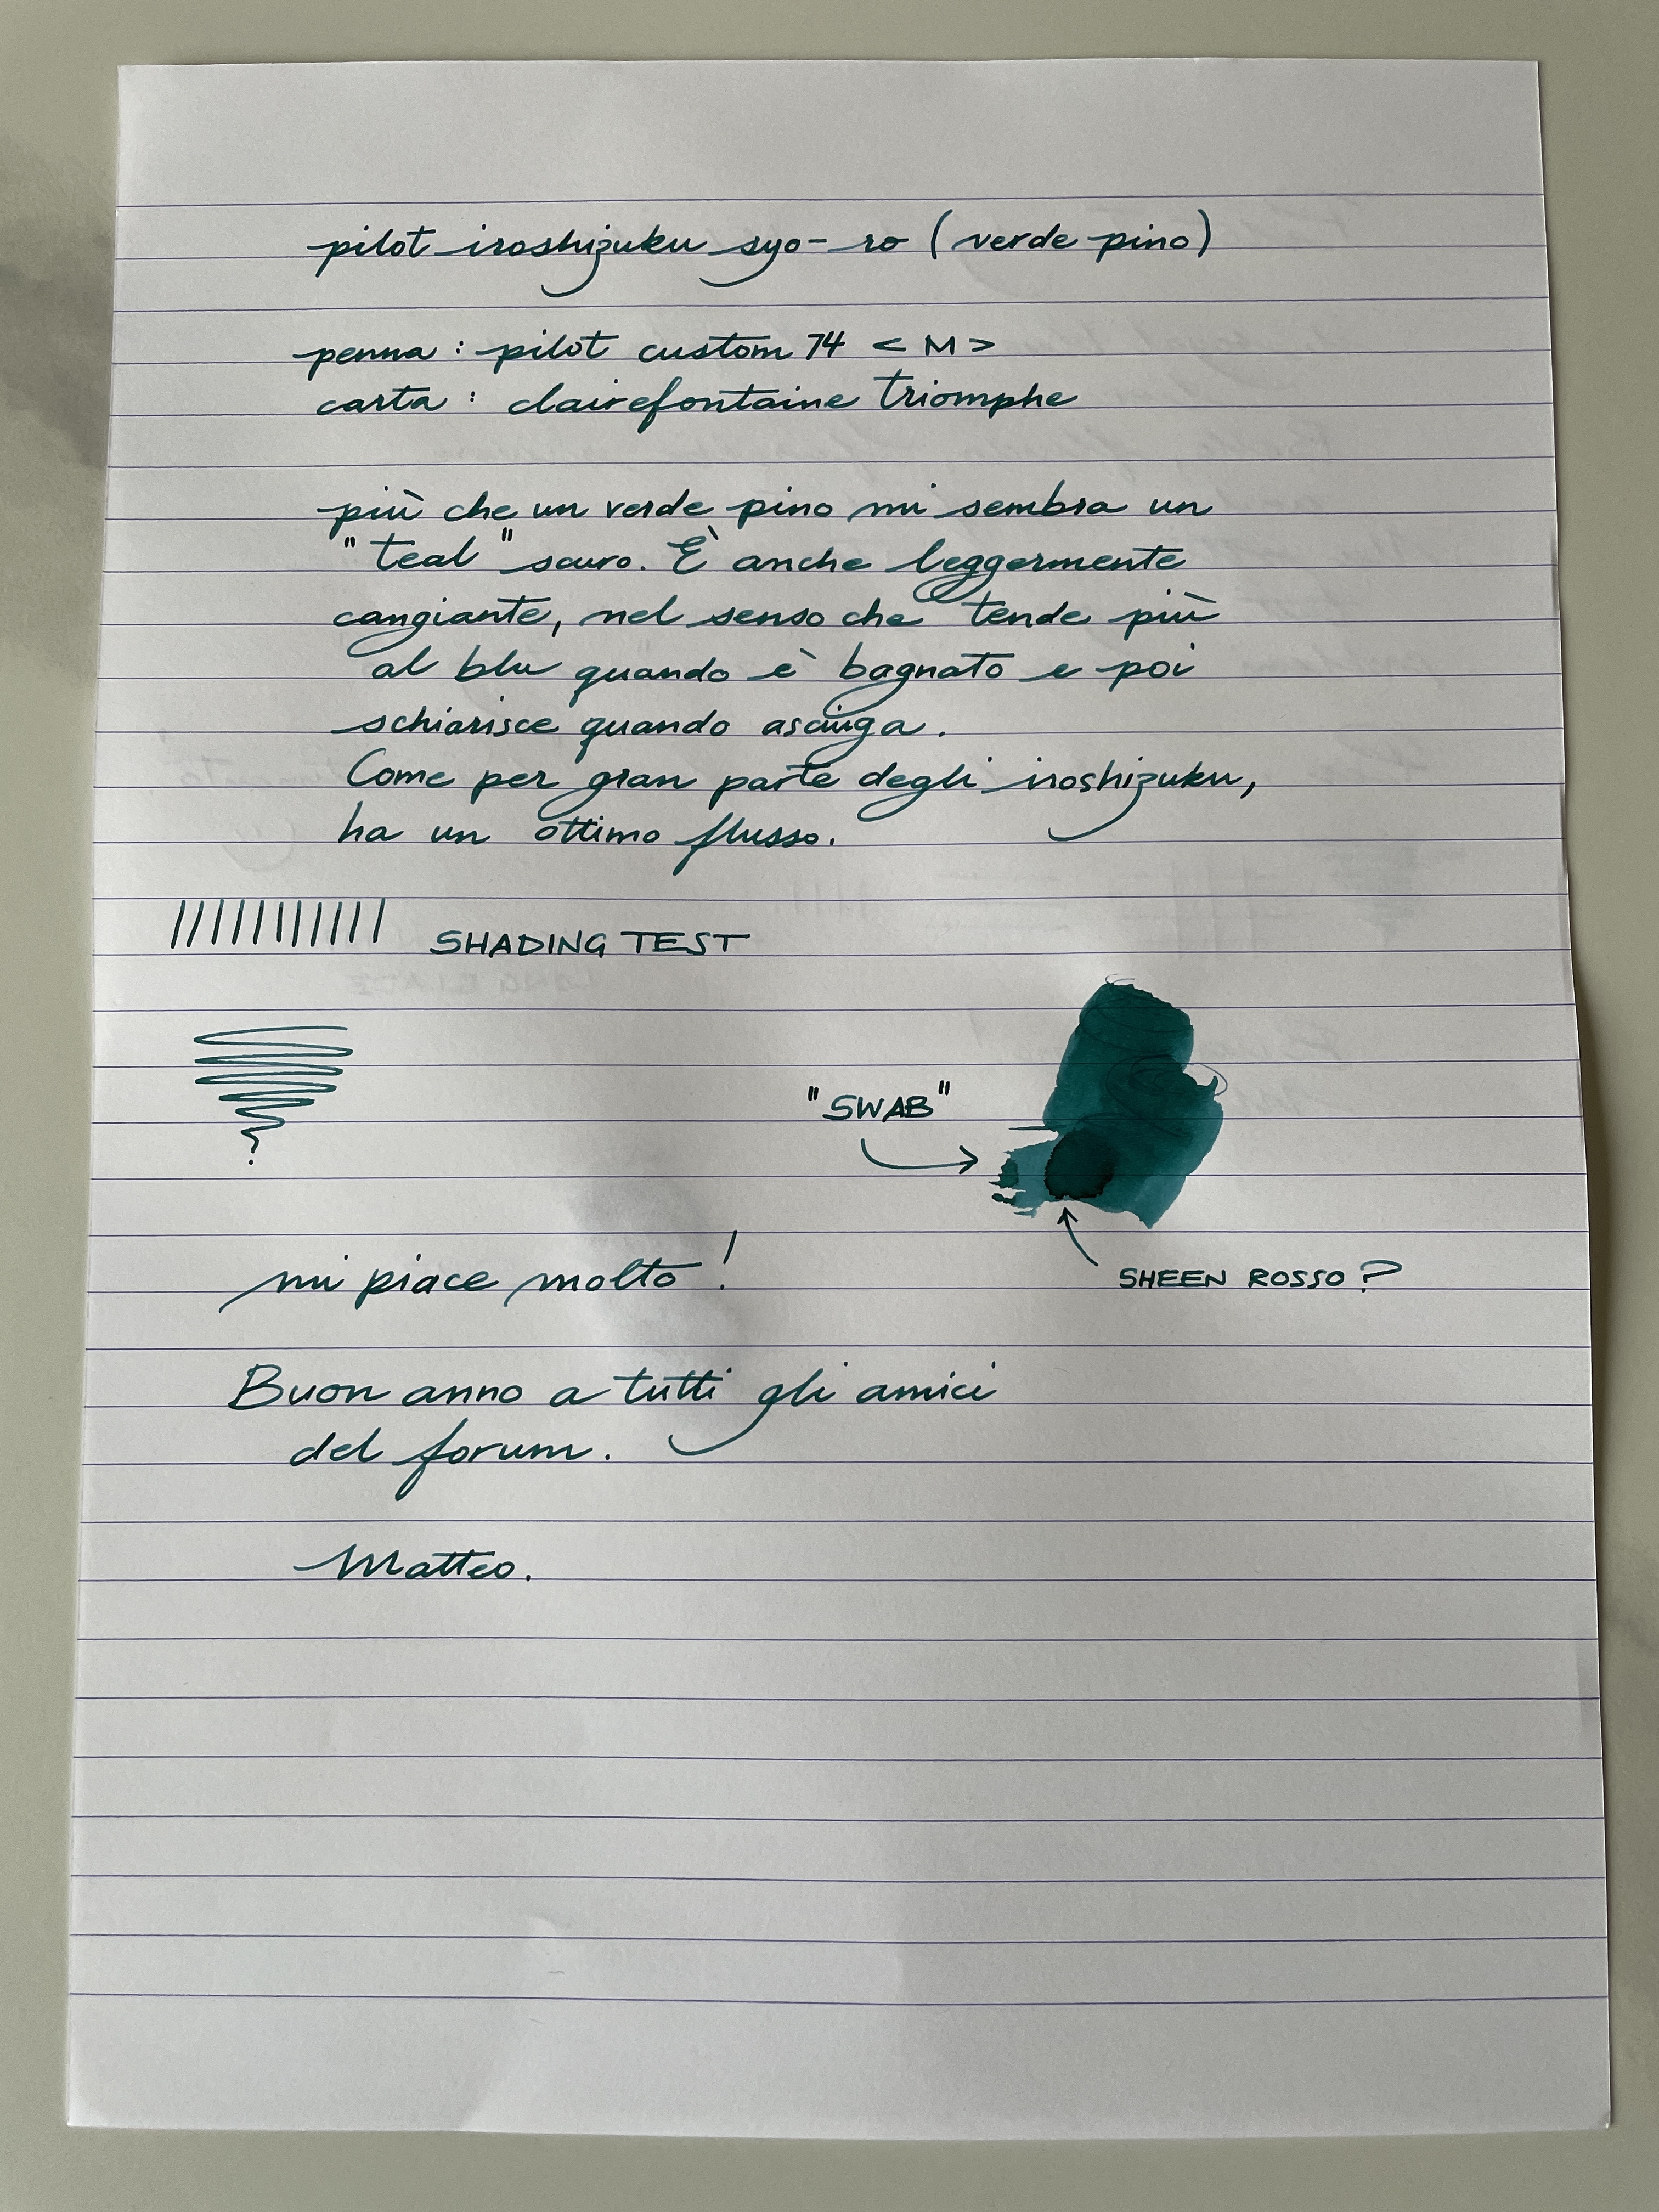 pilot iroshizuku syo-ro (verde pino)
penna : pilot custom 74 < M >
carta : clairefontaine triomphe
più che un verde pino mi sembra un
"teal" scuro. È anche leggermente
cangiante, nel senso che tende più
al blu quando è bagnato e poi
schiarisce quando asciuga.
Come per gran parte degli iroshizuku,
ha un ottimo flusso.
SHADING TEST
"SWAB"
SHEEN ROSSO?
mi piace molto!
Buon anno a tutti gli amici
del forum.
Matteo.